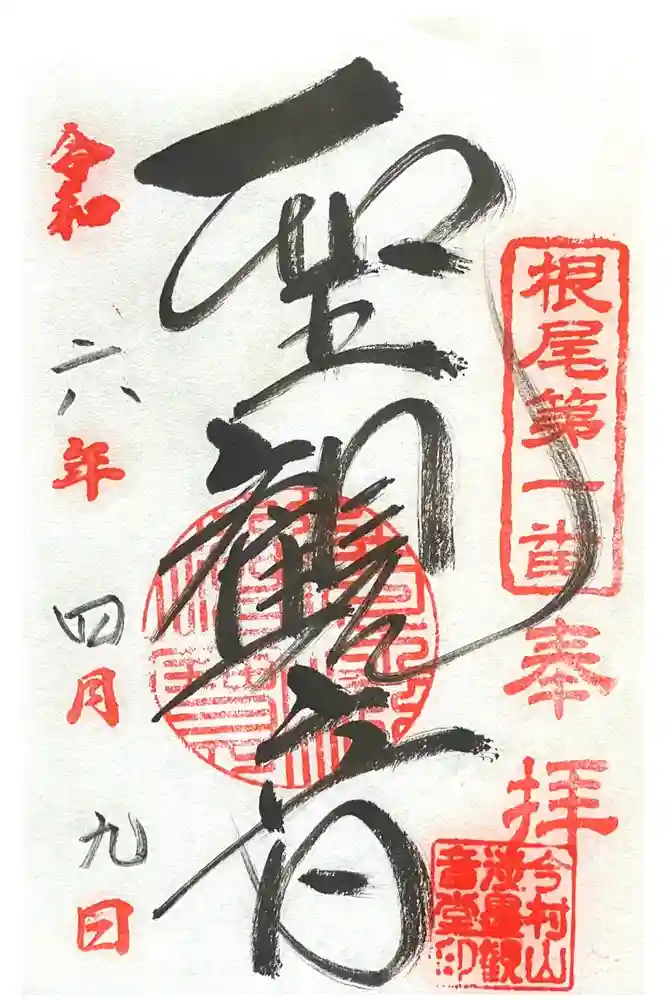 根尾第一番
奉拝
今村山
淡墨観
音堂印
聖観音
令和六年四月九日